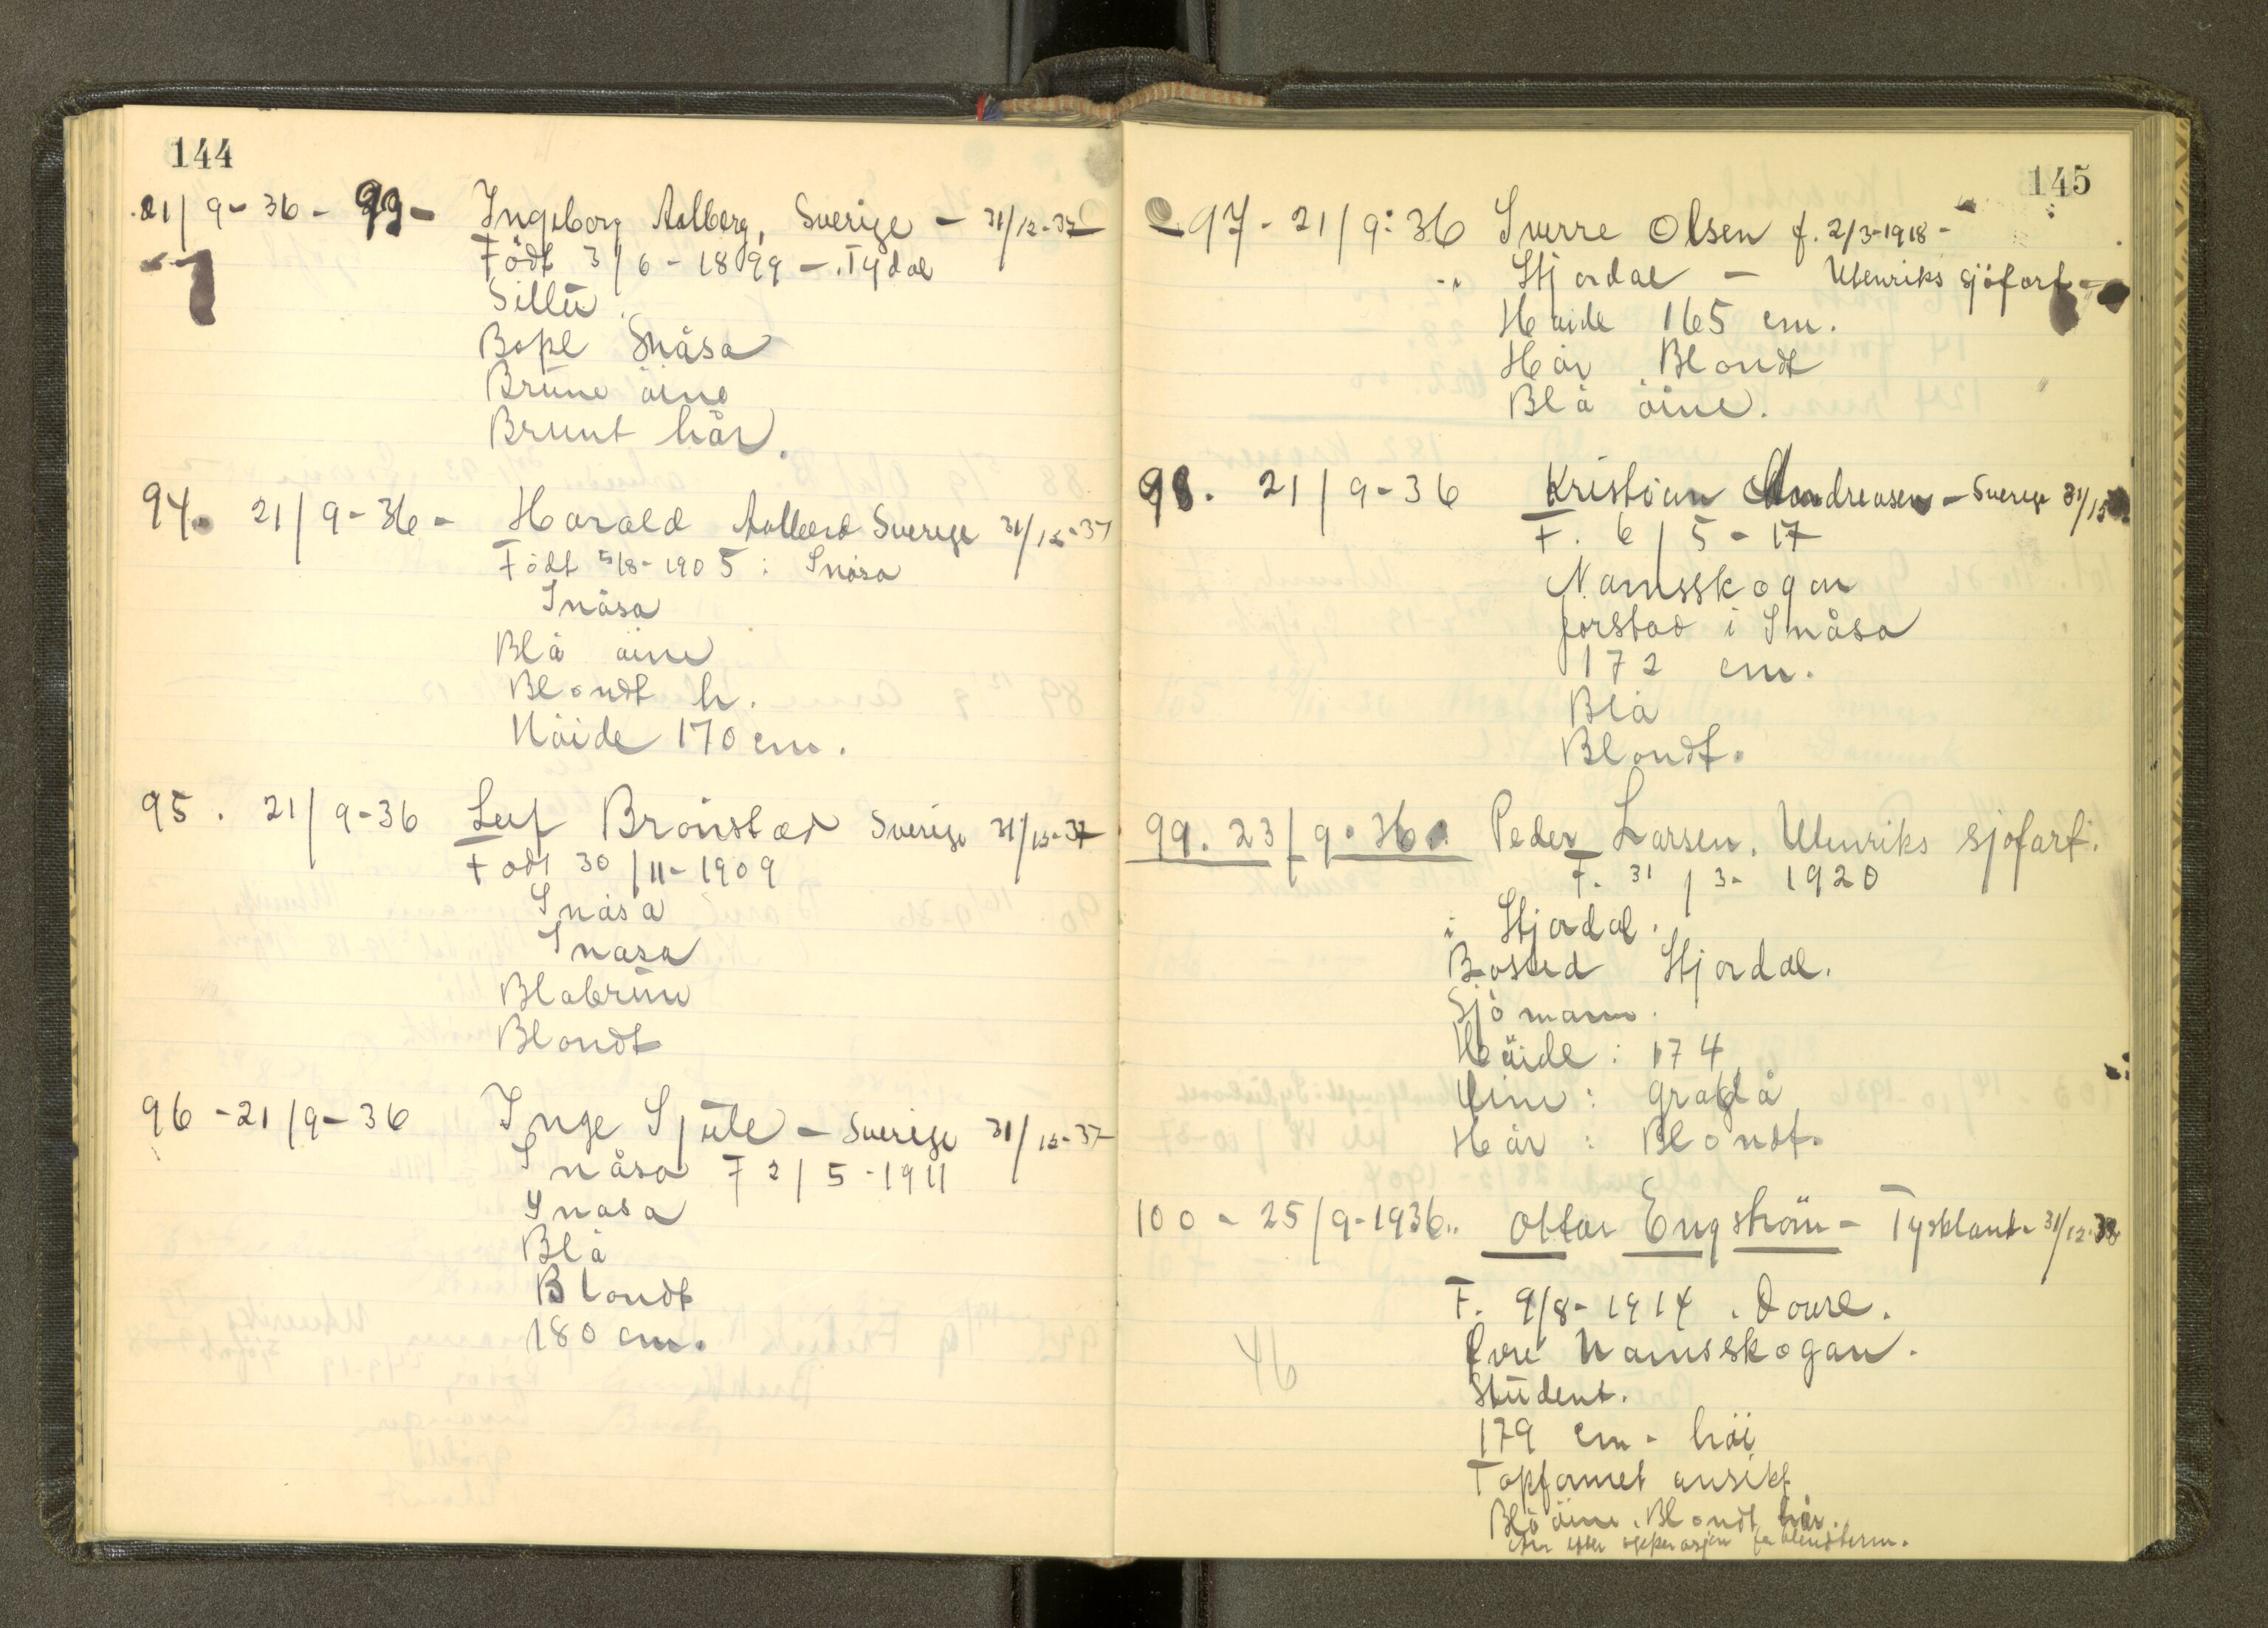 144
21/9-36- 93- Ingeborg Aalberg, Sverige - 31/12-37
Födt 3/6-1899 - Tydal
Bopl Snåsa
Brune öine
Brunt hår.
94. 21/9-36- Harald Aalberg Sverige 31/12-37
Födt 5/8-1905 i Snåsa
Snåsa
Blå öine
Blondt h.
Höide 170 cm.
95. 21/9-36 Leif Brönstad Sverige 31/12-37
Födt 30/11-1909
Snåsa
Snasa
Blabrun
Blondt
96 -21/9-36 Inge Sjule - Sverige 31/12-37
Snåsa F 2/5-1911
Snasa
Blå
Blondt
180 cm.
145
97- 21/9-36 Sverre Olsen f. 2/3-1918-
Stjordal - Utenriks sjöfart-
Høide 165 cm.
Hår Blondt
Blå öine.
98. 21/9-36 Kristian Andreasen - Sverige 31/12
F. 6/5-17
Namsskogan
Jorstad i Snåsa
172 cm.
Blå
Blondt.
99. 23/9-36. Peder Larsen. Utenriks sjöfart.
F. 31/3- 1920
i Stjordal.
Bosted Stjordal.
Sjömann.
Höide: 174
Öine: gråblå
Hår: Blondt.
100 - 25/9-1936. Ottar Engström - Tyskland 31/12-38
F. 9/8-1914. Dovre.
Øvre Namsskogan.
Student.
179 cm - höi
46
ansikt
Blå öine. Blondt hår.
Arr efter